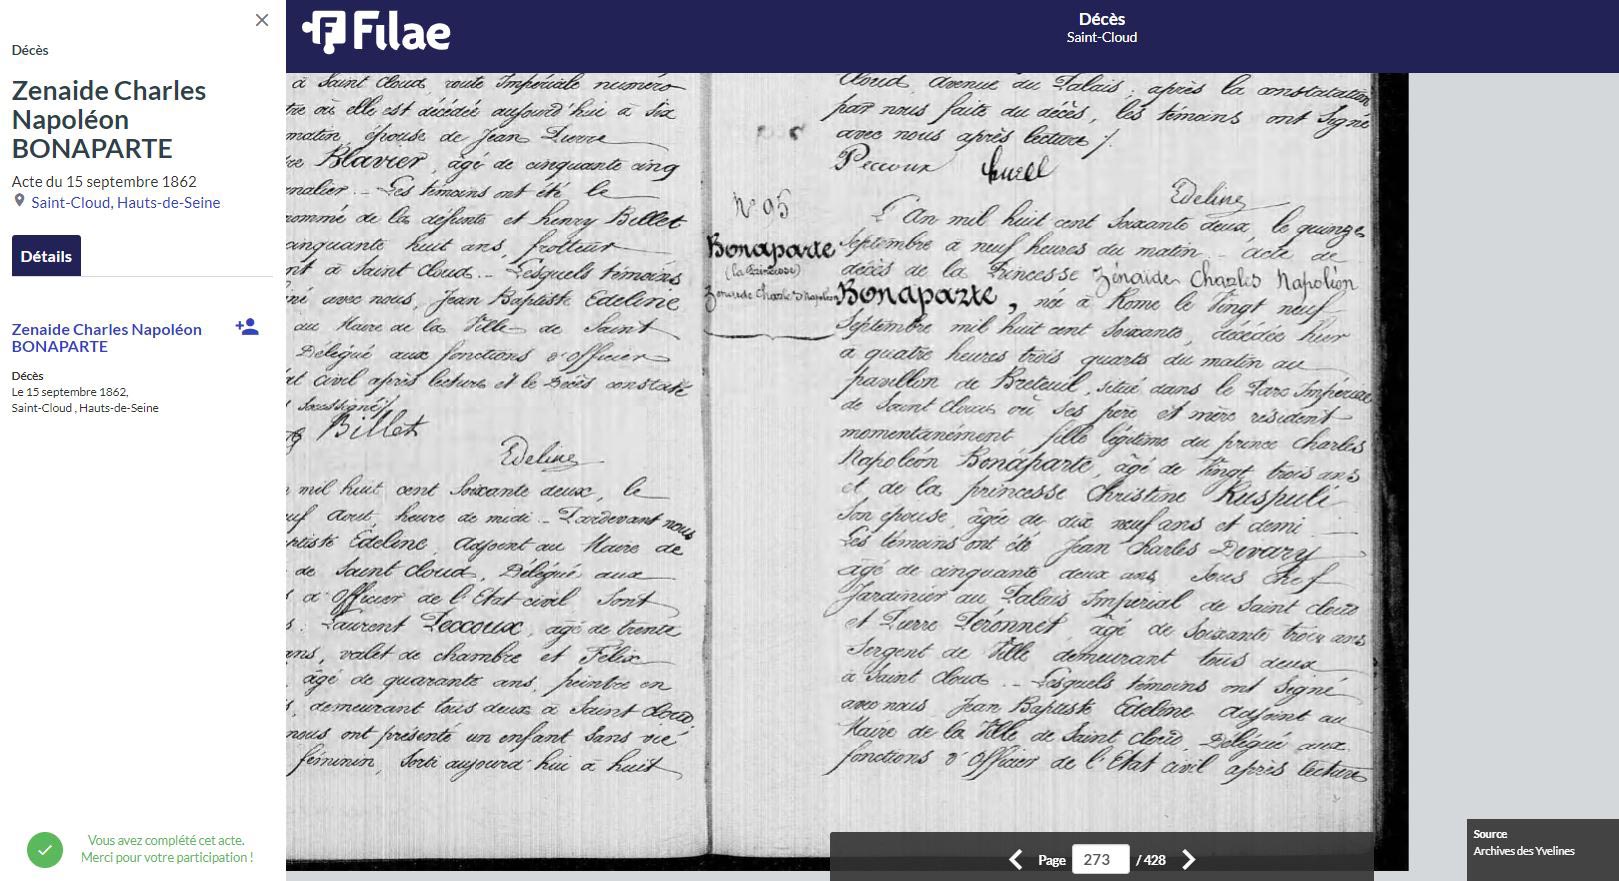 Décès
Zenaide Charles
Napoléon
BONAPARTE
Acte du 15 septembre 1862
Saint-Cloud, Hauts-de-Seine
Détails
Zenaide Charles Napoléon
BONAPARTE
Décès
Le 15 septembre 1862,
Saint-Cloud , Hauts-de-Seine
Vous avez complété cet acte.
Merci pour votre participation !
Filae
Décès
Saint-Cloud
à Saint Cloud route Impériale numéro
où elle est décédée aujourd'hui à Six
matin, épouse de Jean Pierre
Blavier, âgé de cinquante cinq
Les témoins ont été le
nommé de la défunte et henry Billet
cinquante huit ans, frotteur
à Saint Cloud. _ Lesquels témoins
avec nous, Jean Baptiste Edeline
au Maire de la Ville de Saint
Délégué aux fonctions d'officier
civil après lecture et le Décès constaté
Billet
Edeline
mil huit cent Soixante deux, le
aout, heure de midi _ Pardevant nous
Edeline, Adjoint au Maire de
de Saint Cloud, Délégué aux
d'Officier de l'Etat civil Sont
Laurent Peccoux, âgé de trente
ans, valet de chambre et Félix
âgé de quarante ans, peintre en
demeurant tous deux à Saint Cloud,
nous ont présenté un enfant Sans vie
féminin, Sorti aujourd'hui à huit
Cloud avenue du Palais; après la constatation
par nous faite du décès, les témoins ont Signé
avec nous après lecture /.
Peccoux
Edeline
N° 95
Bonaparte
(la Princesse)
Zénaide Charles Napoléon
L'An mil huit cent Soixante deux, le quinze
Septembre à neuf heures du matin _ acte de
décès de la Princesse Zénaide Charles Napoléon
Bonaparte, née à Rome le Vingt neuf
Septembre mil huit cent Soixante, décédée hier
à quatre heures trois quarts du matin au
pavillon de Breteuil, situé dans le Parc Impérial
de Saint Cloud où ses père et mère résident
momentanément fille légitime du prince Charles
Napoléon Bonaparte, âgé de Vingt trois ans
et de la princesse Christine Ruspuli
Son épouse, âgée de dix neuf ans et demi
Les témoins ont été Jean Charles Divary
âgé de cinquante deux ans, Sous chef
Jardinier au Palais Impérial de Saint cloud
et Pierre Péronnet, âgé de Soixante trois ans
Sergent de Ville demeurant tous deux
à Saint Cloud _ Lesquels témoins ont Signé
avec nous Jean Baptiste Edeline adjoint au
Maire de la Ville de Saint Cloud, Délégué aux
fonctions d'Officier de l'Etat civil après lecture
Page 273 / 428
Source
Archives des Yvelines